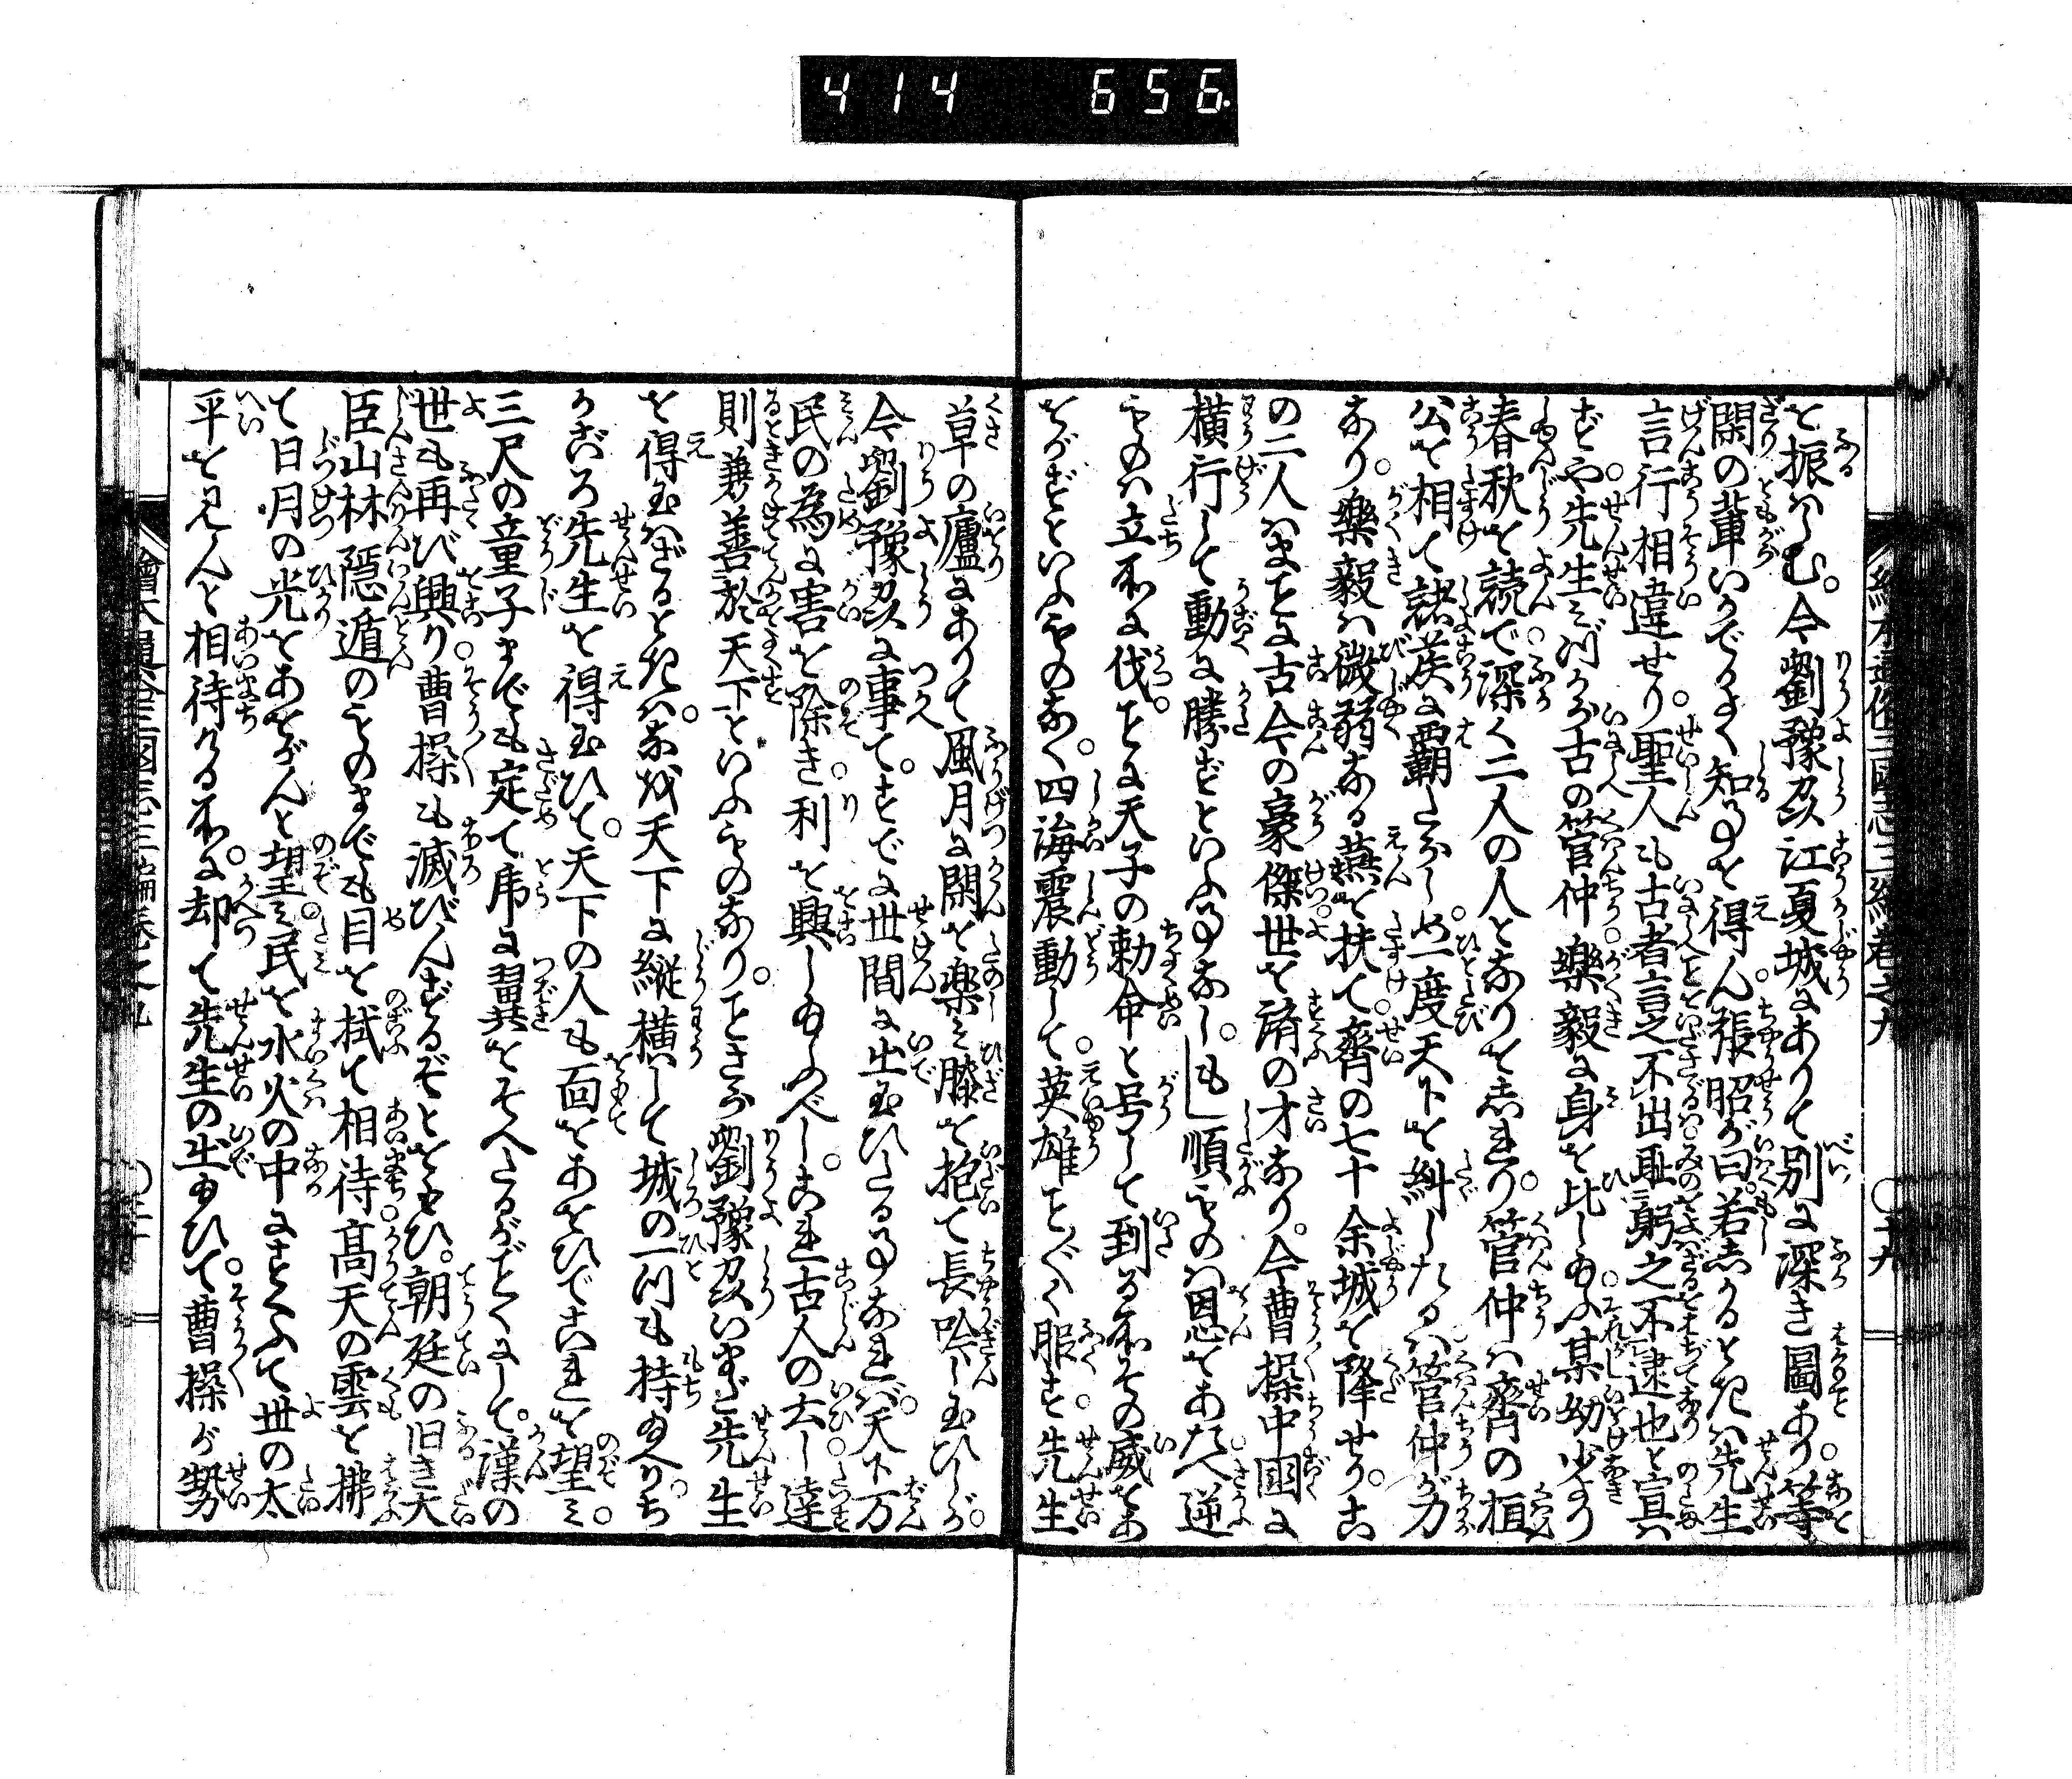 414 656
を振はしむ。今劉豫州江夏城にありて別に深き圖あり。等
閑の輩いかでかよく知ることを得ん。張昭が曰若しかるときは先生
言行相違せり。聖人も古者言之不出耻躬之不逮也と宣は
ずや。先生みづから古の管仲樂毅に身を比し給ふ。某幼少より
春秋を読で深く二人の人となりをしれり。管仲は齊の桓
公を相て諸侯に覇たらしめ一度天下を糾したるは管仲が力
なり。樂毅は微弱なる燕を扶て齊の七十余城を降せり。こ
の二人はまことに古今の豪傑世を済の才なり。今曹操中國に
横行して動に勝ずといふことなし。もし順ものは恩をあたへ逆
ものは立所に伐。ことに天子の勅命と号して到る所その威をあ
をがずといふものなく。四海震動して。英雄ことごとく服す。先生
草の廬にありて風月に閑を楽み膝を抱て長吟し玉ひしが。
今劉豫州に事て。すでに世間に出玉ひたることなれば。天下万
民の為に害を除き利を興し給ふべし。これ古人の云し達
則兼善於天下といふものなり。ことさら劉豫州いまだ先生
を得玉はざるときは。なを天下に縦横して城の一つも持給へり。ち
かごろ先生を得玉ひて。天下の人も面をあをひでこれを望み。
三尺の童子までも定て虎に翼をそへたるがごとくにして。漢の
世も再び興り。曹操も滅びんずるぞとをもひ。朝廷の旧き大
臣山林隠遁のものまでも目を拭て相待。高天の雲を拂
て日月の光をあをがんと望み。民を水火の中にすくふて世の太
平を見んと相待ける所に。却て先生の出給ひて。曹操が勢